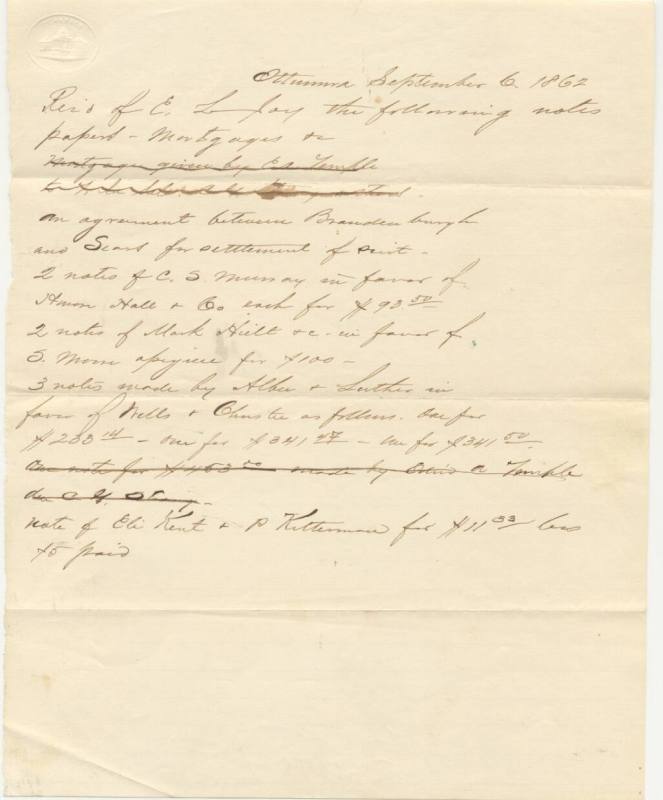 Ottumwa September 6. 1862
Rec'd of E. L. Joy the following notes
papers - Mortgages &c
Mortgage given by E A Temple
to
an agreement between Brandenburgh
and Sears for settlement of suit -
2 notes of C. S. Murray in favor of
Hall & Co each for $93.50
2 notes of Mark Hiett &c - in favor of
S. Moore apiece for $100 -
3 notes made by Alber & Luther in
favor of Wells & Christie as follows. One for
$233 14 - One for $341 47 - One for $341 50.
One note for $453 made by A Temple
note of Eli Kent & P Kitterman for $11 33 less
$5 paid